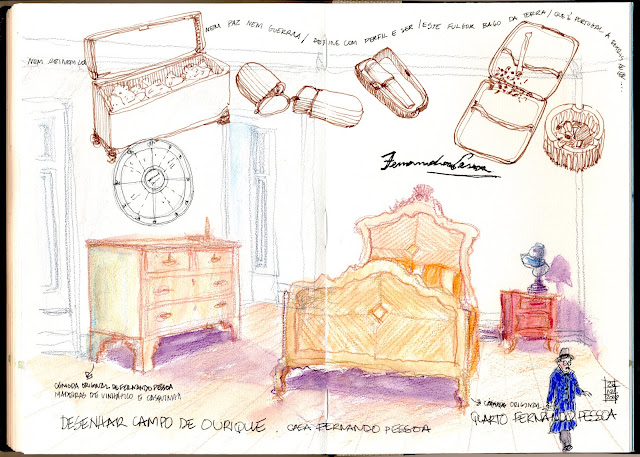 NEM REI NEM LEI
NEM PAZ NEM GUERRA / DEFINE COM PERFIL E SER / ESTE FULGOR BAÇO DA TERRA / QUE É PORTUGAL A
Fernando Pessoa
CÓMODA ORIGINAL DE FERNANDO PESSOA
MADEIRAS DE VINHÁTICO E CASQUINHA
CÓMODA ORIGINAL
QUARTO FERNANDO PESSOA
DESENHAR CAMPO DE OURIQUE. CASA FERNANDO PESSOA